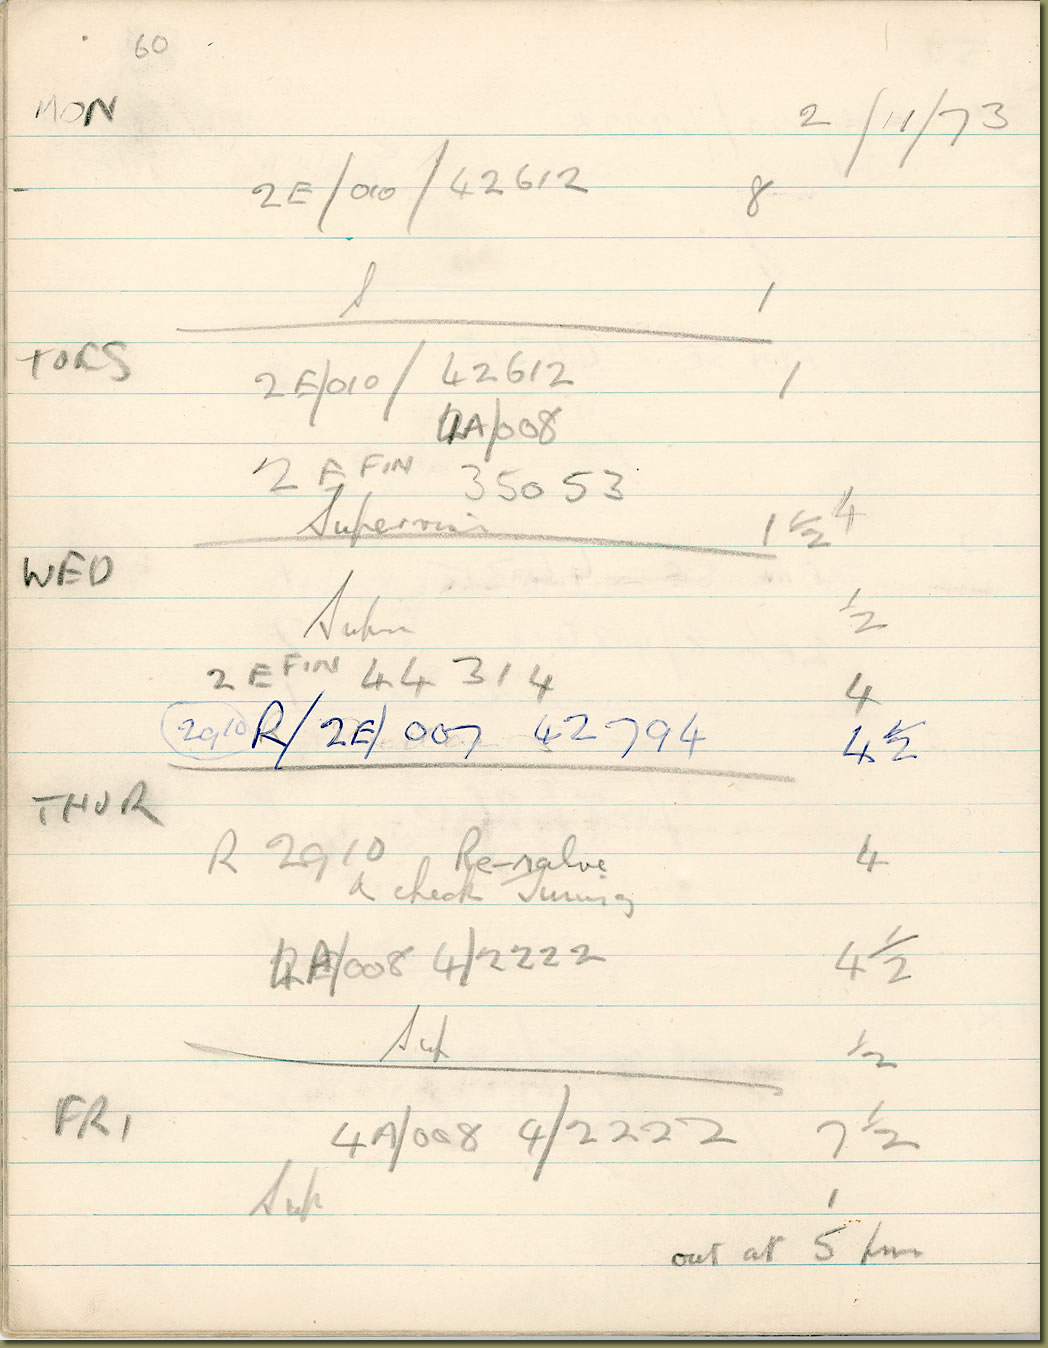 60
MON 2/11/73
2E/010/42612 8
S 1
TUES
2E/010/ 42612 1
4A/008
2 E FIN 35053
Supervis 1½ 4
WED
Super ½
2 E FIN 44314 4
2910 R/2E/007 42794 4½
THUR
R 2910 Re-valve 4
& check Tuning
4A/008 4/2222 4½
Sup ½
FRI
4A/008 4/2222 7½
Sup 1
out at 5 pm